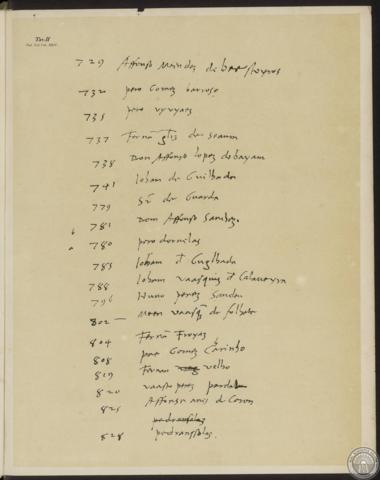 Tav. II
729 Affonso Meendez de besteyros
732 pero Gomez barroso
735 pero vyvyaez
737 Fernā glz de seaura
738 Don Affonso lopez de bayam
741 Joham de Guilhade
779 de Guarda
b 781 Dom Affonso Sanchez.
a 780 pero dornelas
785 Joham d Guylhade
788 Joham vaasquiz d Talaveyra
796 Nuno perez Sandeu
802 — Meen vaasqz de folhete
804 Fernā Froyaz
808 pae Gomez Charinho
819 Fernam velho
820 vaasco perez pardal
825 Affonso anes de Coton
pedranssolaz
828 pedranssolaz.